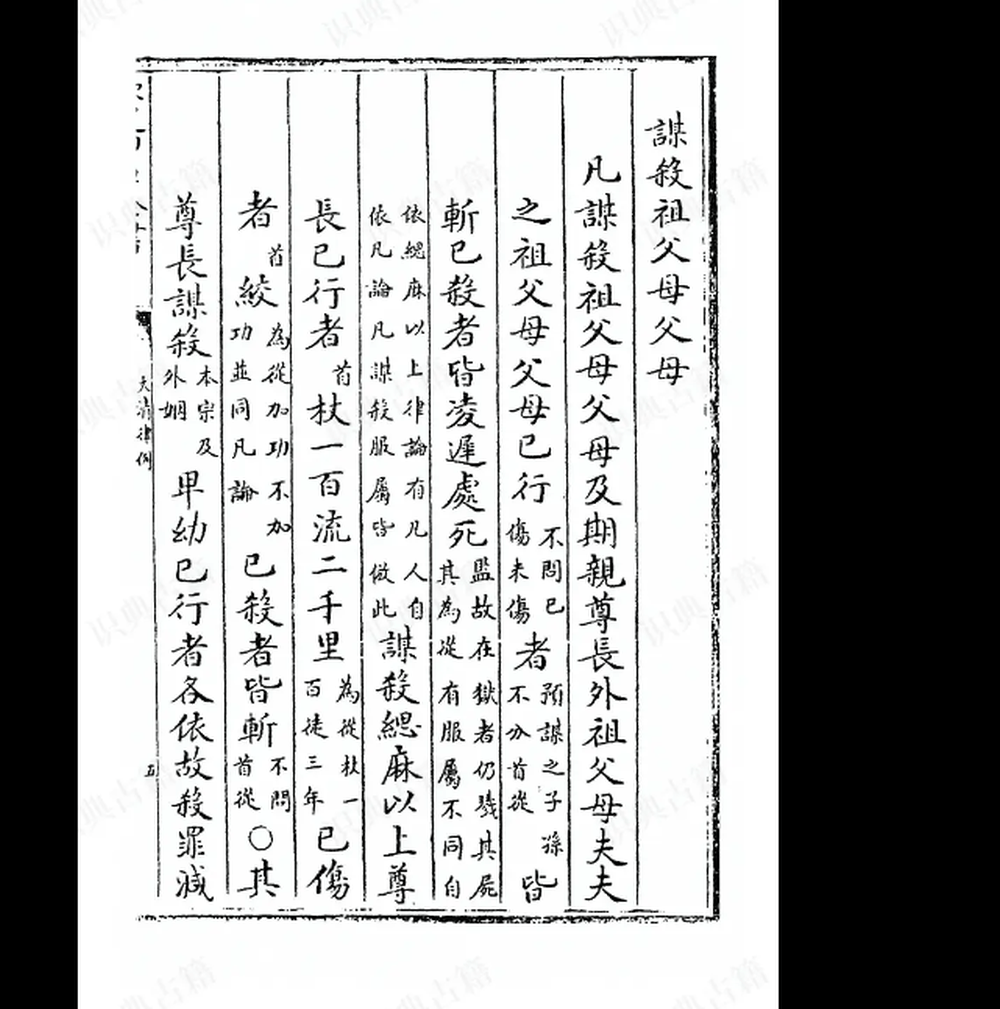 謀殺祖父母父母
凡謀殺祖父母父母及期親尊長外祖父母夫夫
之祖父母父母已行不問已傷未傷者預謀之子孫不分首從皆
斬已殺者皆凌遲處死監故在獄者仍戮其屍其為從有服屬不同自
依緦麻以上律論有凡人自依凡論凡謀殺服屬皆倣此謀殺緦麻以上尊
長已行者首杖一百流二千里為從杖一百徒三年已傷
者首絞為從加功不加功並同凡論已殺者皆斬不問首從○其
尊長謀殺本宗及外姻卑幼已行者各依故殺罪減
大清律例
五
识典古籍